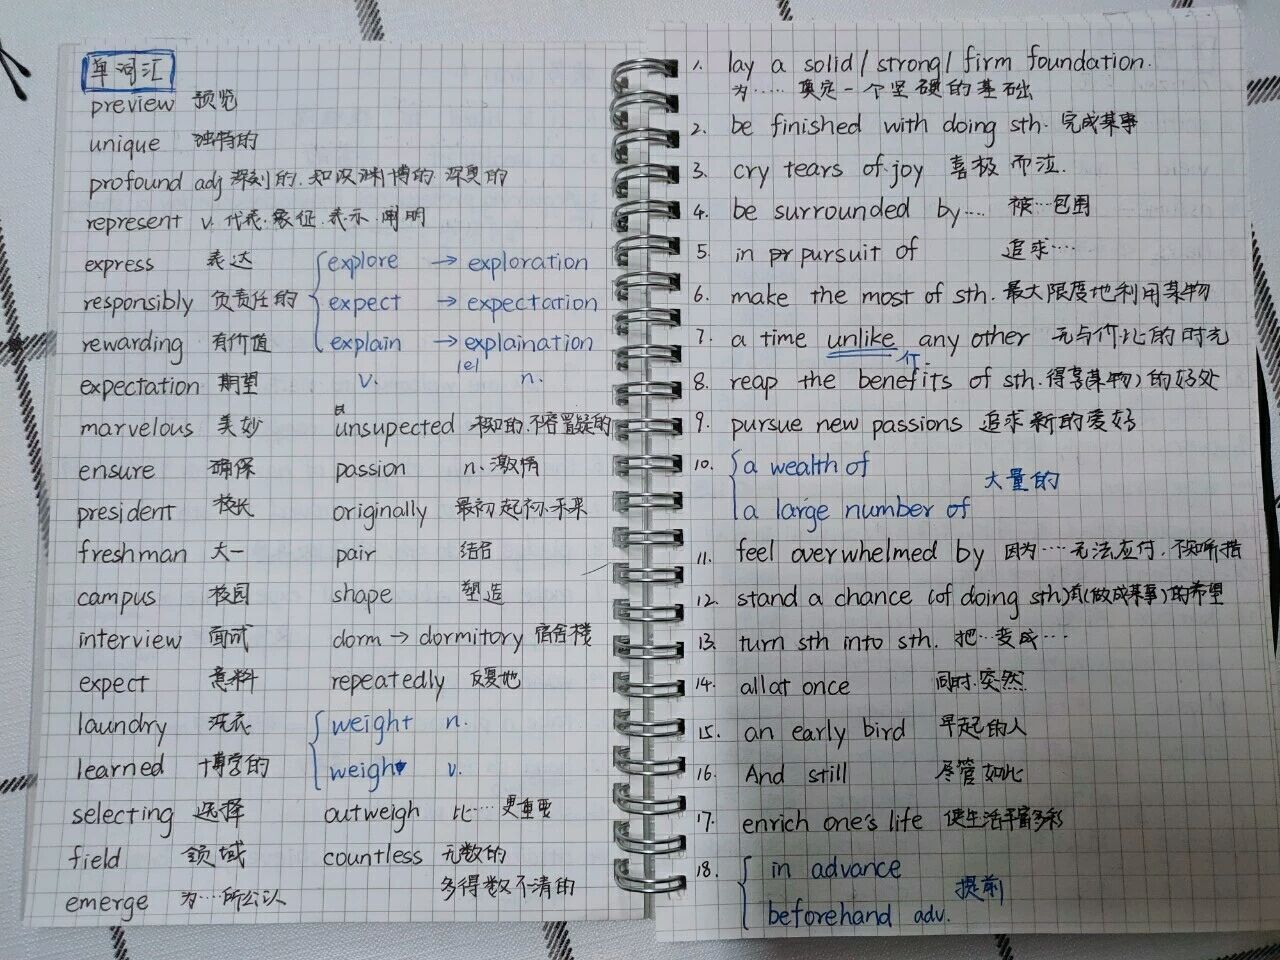 单词汇
preview 预览
unique 独特的
profound adj 深刻的.知识渊博的.深奥的
represent v. 代表.象征.表示.阐明
express 表达 explore → exploration
responsibly 负责任的 expect → expectation
rewarding 有价值 explain → explaination
expectation 期望 v. n.
marvelous 美妙 unsupected 不容置疑的
ensure 确保 passion n.激情
president 校长 originally 最初.起初.未来
freshman 大一 pair 结合
campus 校园 shape 塑造
interview 面试 dorm → dormitory 宿舍楼
expect 意料 repeatedly 反复地
laundry 洗衣 weight n.
learned 博学的 weigh v.
selecting 选择 outweigh 比……更重要
field 领域 countless 无数的
emerge 为……所公认 多得数不清的
1. lay a solid/strong/firm foundation.
为……奠定一个坚硬的基础
2. be finished with doing sth. 完成某事
3. cry tears of joy 喜极而泣.
4. be surrounded by…. 被…包围
5. in pr pursuit of 追求…
6. make the most of sth. 最大限度地利用某物
7. a time unlike any other 无与伦比的时光
介.
8. reap the benefits of sth. 得享(某物)的好处
9. pursue new passions 追求新的爱好
10. a wealth of 大量的
a large number of
11. feel overwhelmed by 因为……无法应付.不知所措
12. stand a chance (of doing sth)有(做成某事)的希望
13. turn sth into sth. 把…变成…
14. all at once 同时.突然
15. an early bird 早起的人
16. And still 尽管如此
17. enrich one's life 使生活丰富多彩
18. in advance 提前
beforehand adv.